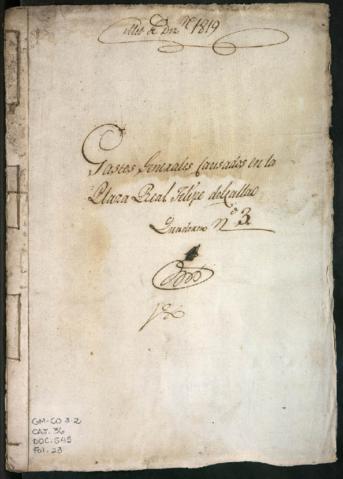 Mes de Dre. de 1819
Gastos Generales Causados en la
Plaza Real Felipe del Callao
Quaderno N.º 3
GM-CO 3-2
CAJ. 36
DOC. 545
FOL. 23